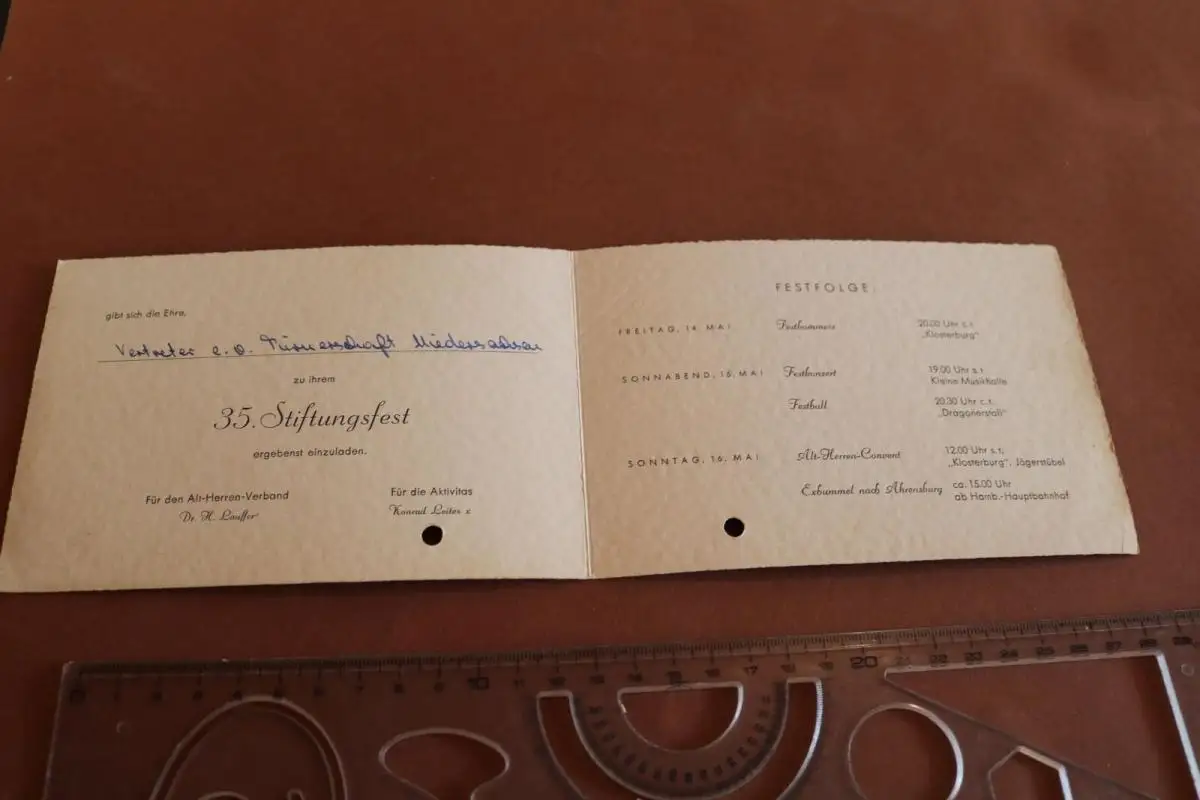 gibt sich die Ehre,
Vertreter e. o. Turnerschaft Niedersachsen
zu ihrem
35. Stiftungsfest
ergebenst einzuladen.
Für den Alt-Herren-Verband
Dr. H. Lauffer
Für die Aktivitas
Konrad Leites x
FESTFOLGE:
FREITAG, 14. MAI Festkommers 20.00 Uhr s.t.
„Klosterburg"
SONNABEND, 15. MAI Festkonzert 19.00 Uhr s.t.
Kleine Musikhalle
Festball 20.30 Uhr c.t.
„Dragonerstall"
SONNTAG, 16. MAI Alt-Herren-Convent 12.00 Uhr s.t.
„Klosterburg", Jägerstübel
Exbummel nach Ahrensburg ca. 15.00 Uhr
ab Hamb.-Hauptbahnhof
0 10 11 12 13 14 15 16 17 18 19 20 21 22 23 24 25 26 27 28 29